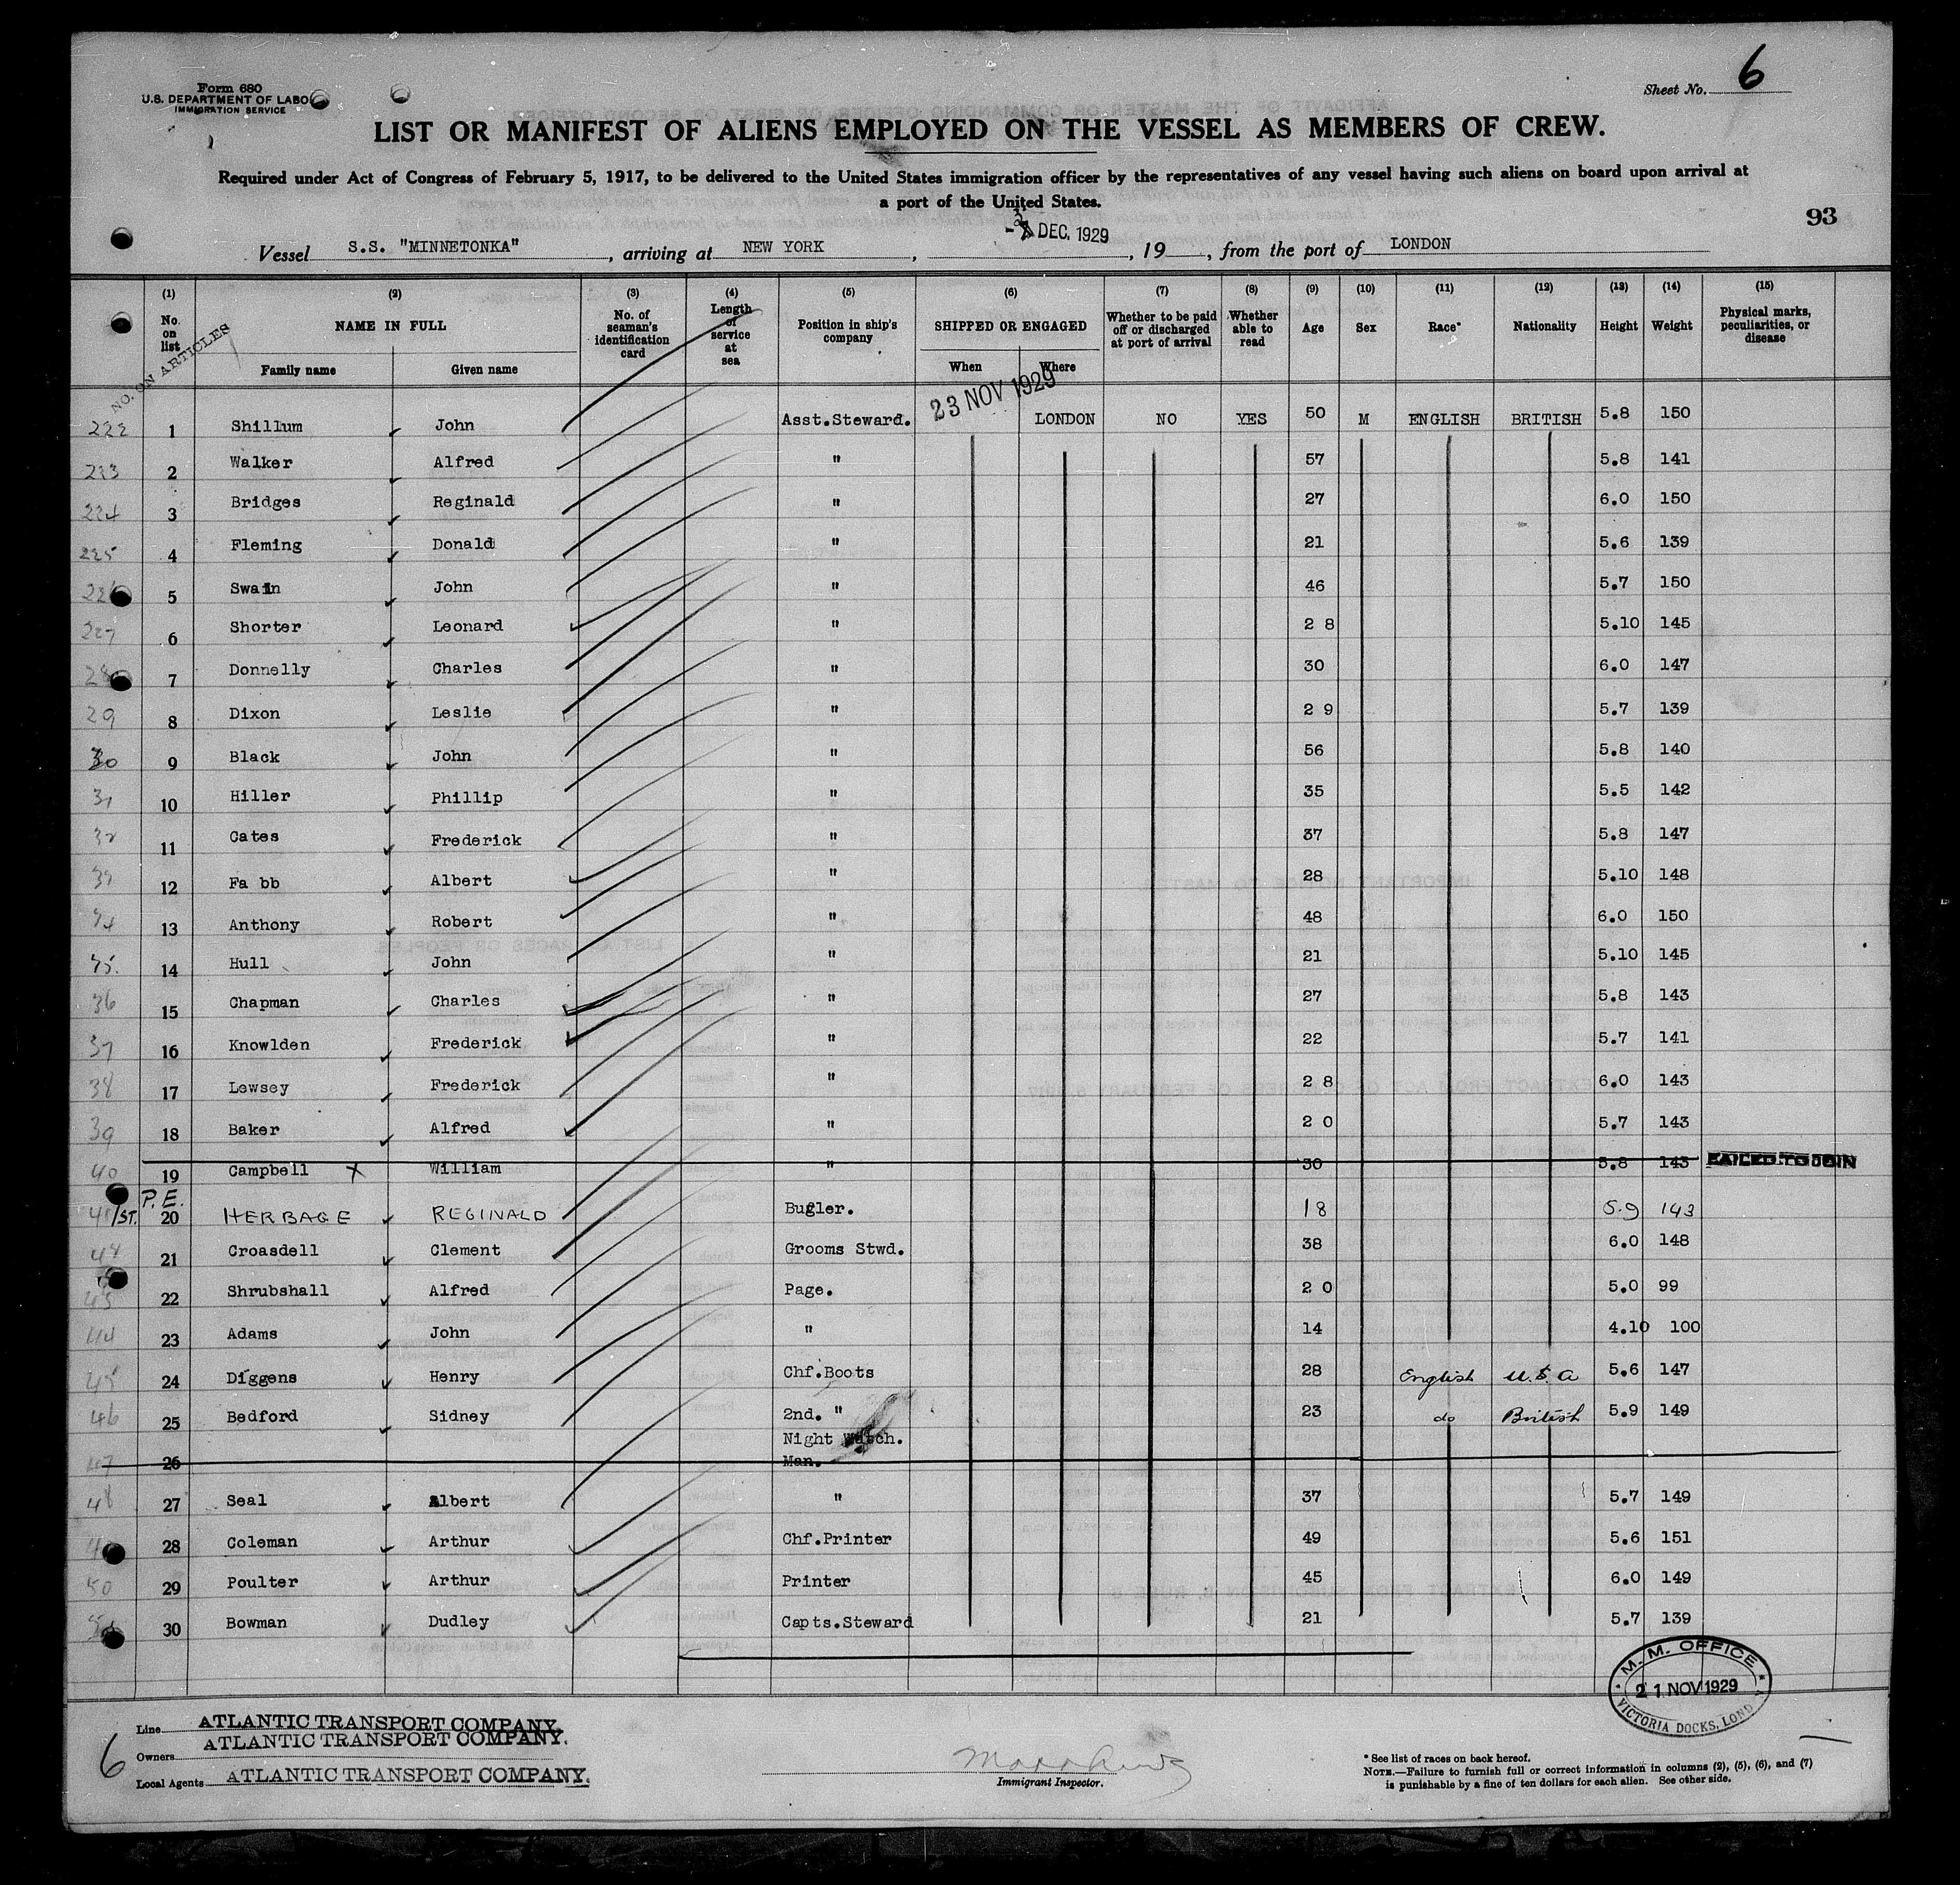 Form 680
U.S. DEPARTMENT OF LABO
IMMIGRATION SERVICE
Sheet No. 6
LIST OR MANIFEST OF ALIENS EMPLOYED ON THE VESSEL AS MEMBERS OF CREW.
Required under Act of Congress of February 5, 1917, to be delivered to the United States immigration officer by the representatives of any vessel having such aliens on board upon arrival at
a port of the United States.
93
Vessel S.S. "MINNETONKA" , arriving at NEW YORK , DEC. 1929 , 19 , from the port of LONDON
(1) (2) (3) (4) (5) (6) (7) (8) (9) (10) (11) (12) (13) (14) (15)
No. on list NAME IN FULL No. of seaman's identification card Length of service at sea Position in ship's company SHIPPED OR ENGAGED Whether to be paid off or discharged at port of arrival Whether able to read Age Sex Race* Nationality Height Weight Physical marks, peculiarities, or disease
NO. ON ARTICLES Family name Given name When Where
23 NOV 1929
222 1 Shillum John Asst.Steward. LONDON NO YES 50 M ENGLISH BRITISH 5.8 150
223 2 Walker Alfred " 57 5.8 141
224 3 Bridges Reginald " 27 6.0 150
225 4 Fleming Donald " 21 5.6 139
5 Swain John " 46 5.7 150
227 6 Shorter Leonard " 28 5.10 145
7 Donnelly Charles " 30 6.0 147
29 8 Dixon Leslie " 29 5.7 139
30 9 Black John " 56 5.8 140
31 10 Hiller Phillip " 35 5.5 142
32 11 Cates Frederick " 37 5.8 147
33 12 Fa bb Albert " 28 5.10 148
34 13 Anthony Robert " 48 6.0 150
35. 14 Hull John " 21 5.10 145
36 15 Chapman Charles " 27 5.8 143
37 16 Knowlden Frederick " 22 5.7 141
38 17 Lewsey Frederick " 28 6.0 143
39 18 Baker Alfred " 20 5.7 143
40 19 Campbell X William " 30 5.8 143 FAILED TO JOIN
P.E.
41 /ST. 20 HERBAGE REGINALD Bugler. 18 5.9 143
21 Croasdell Clement Grooms Stwd. 38 6.0 148
22 Shrubshall Alfred Page. 20 5.0 99
23 Adams John " 14 4.10 100
45 24 Diggens Henry Chf.Boots 28 English U.S.A 5.6 147
46 25 Bedford Sidney 2nd. " 23 do British 5.9 149
Night Watch.
47 26 Man.
48 27 Seal Albert " 37 5.7 149
28 Coleman Arthur Chf.Printer 49 5.6 151
50 29 Poulter Arthur Printer 45 6.0 149
30 Bowman Dudley Capts.Steward 21 5.7 139
M. M. OFFICE
21 NOV 1929
VICTORIA DOCKS, LOND
6
Line ATLANTIC TRANSPORT COMPANY.
Owners ATLANTIC TRANSPORT COMPANY.
Local Agents ATLANTIC TRANSPORT COMPANY.
Immigrant Inspector.
* See list of races on back hereof.
NOTE.—Failure to furnish full or correct information in columns (2), (5), (6), and (7)
is punishable by a fine of ten dollars for each alien. See other side.